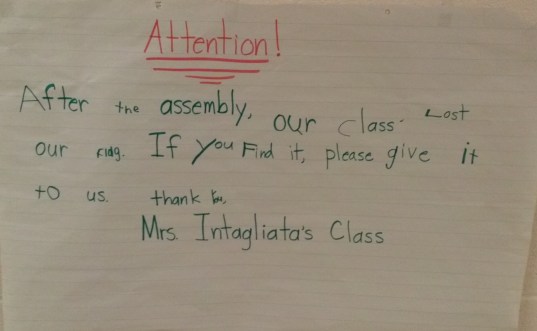 Attention!
After the assembly, our class. Lost
our FlAg. If you Find it, please give it
to us. thank You,
Mrs. Intagliata's Class